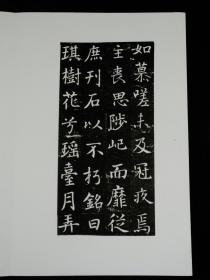 如慕嗟未及冠疾焉
主丧思陟屺而靡從
庶刊石以不朽銘曰
琪樹花兮瑶臺月弄